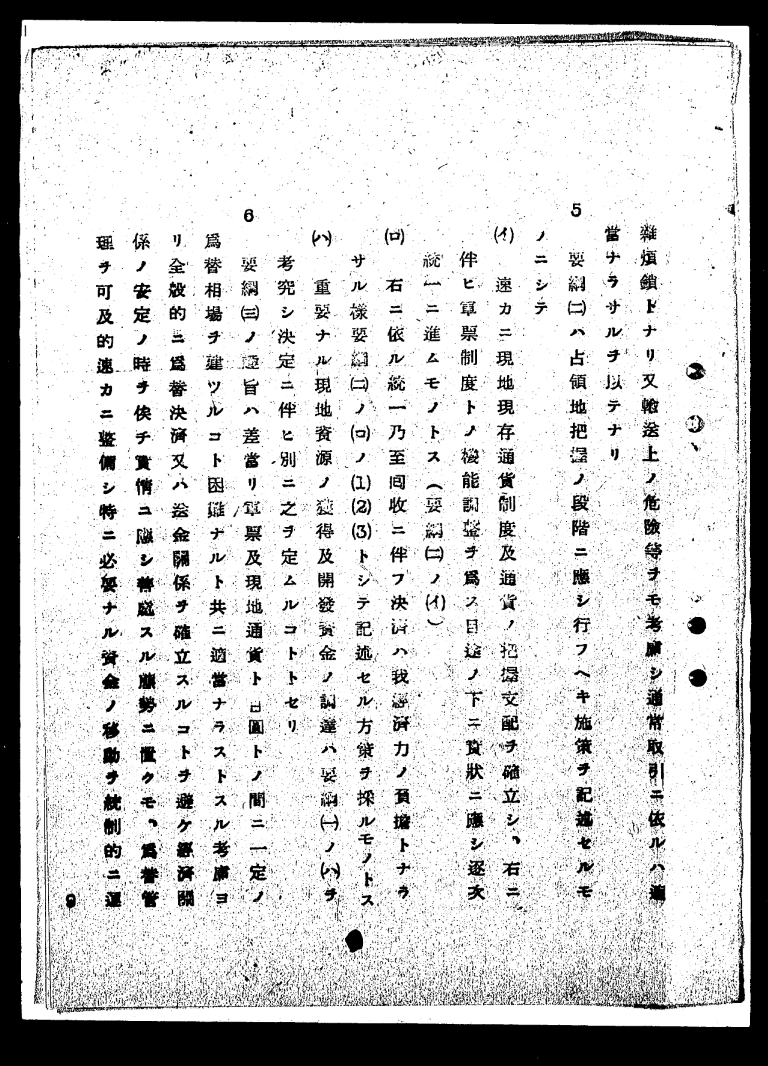 雜煩鎖トナリ又輸送上ノ危險等ヲモ考慮シ通常取引ニ依ルハ適
當ナラサルヲ以テナリ
5 要綱㈡ハ占領地把握ノ段階ニ應シ行フヘキ施策ヲ記述セルモ
ノニシテ
(イ) 速カニ現地現存通貨制度及通貨ノ把握支配ヲ確立シ、右ニ
伴ヒ軍票制度トノ機能調整ヲ爲ス目途ノ下ニ實狀ニ應シ逐次
統一ニ進ムモノトス(要綱㈡ノ(イ))
(ロ) 右ニ依ル統一乃至囘收ニ伴フ決濟ハ我經濟力ノ負擔トナラ
サル樣要綱㈡ノ(ロ)ノ(1)(2)(3)トシテ記述セル方策ヲ採ルモノトス
(ハ) 重要ナル現地資源ノ獲得及開發資金ノ調達ハ要綱㈠ノ(ハ)ヲ
考究シ決定ニ伴ヒ別ニ之ヲ定ムルコトトセリ
6 要綱㈢ノ趣旨ハ差當リ軍票及現地通貨ト日圓トノ間ニ一定ノ
爲替相場ヲ建ツルコト困難ナルト共ニ適當ナラストスル考慮ヨ
リ全般的ニ爲替決濟又ハ送金關係ヲ確立スルコトヲ避ケ經濟關
係ノ安定ノ時ヲ俟チ實情ニ應シ善處スル態勢ニ置クモ、爲替管
理ヲ可及的速カニ整備シ特ニ必要ナル資金ノ移動ヲ統制的ニ運
9